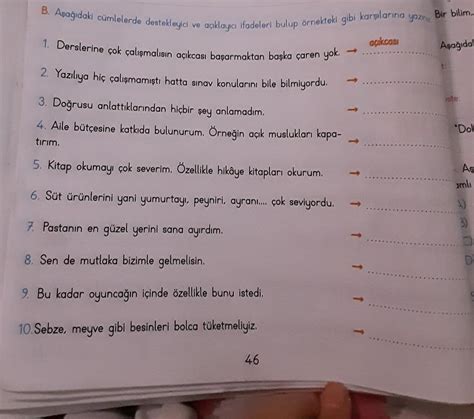 B. Aşağıdaki cümlelerde destekleyici ve açıklayıcı ifadeleri bulup örnekteki gibi karşılarına yazınız.
Bir bilim
1. Derslerine çok çalışmalısın açıkcası başarmaktan başka çaren yok. → açıkcası
Aşağıdal
2. Yazılıya hiç çalışmamıştı hatta sınav konularını bile bilmiyordu. →
3. Doğrusu anlattıklarından hiçbir şey anlamadım. →
4. Aile bütçesine katkıda bulunurum. Örneğin açık muslukları kapa-
tırım. →
5. Kitap okumayı çok severim. Özellikle hikâye kitapları okurum. →
6. Süt ürünlerini yani yumurtayı, peyniri, ayranı.... çok seviyordu. →
7. Pastanın en güzel yerini sana ayırdım. →
8. Sen de mutlaka bizimle gelmelisin. →
9. Bu kadar oyuncağın içinde özellikle bunu istedi. →
10. Sebze, meyve gibi besinleri bolca tüketmeliyiz. →
46